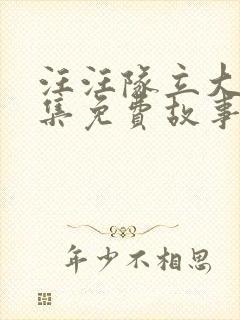 汪汪队立大
集免费故事
年少不相思